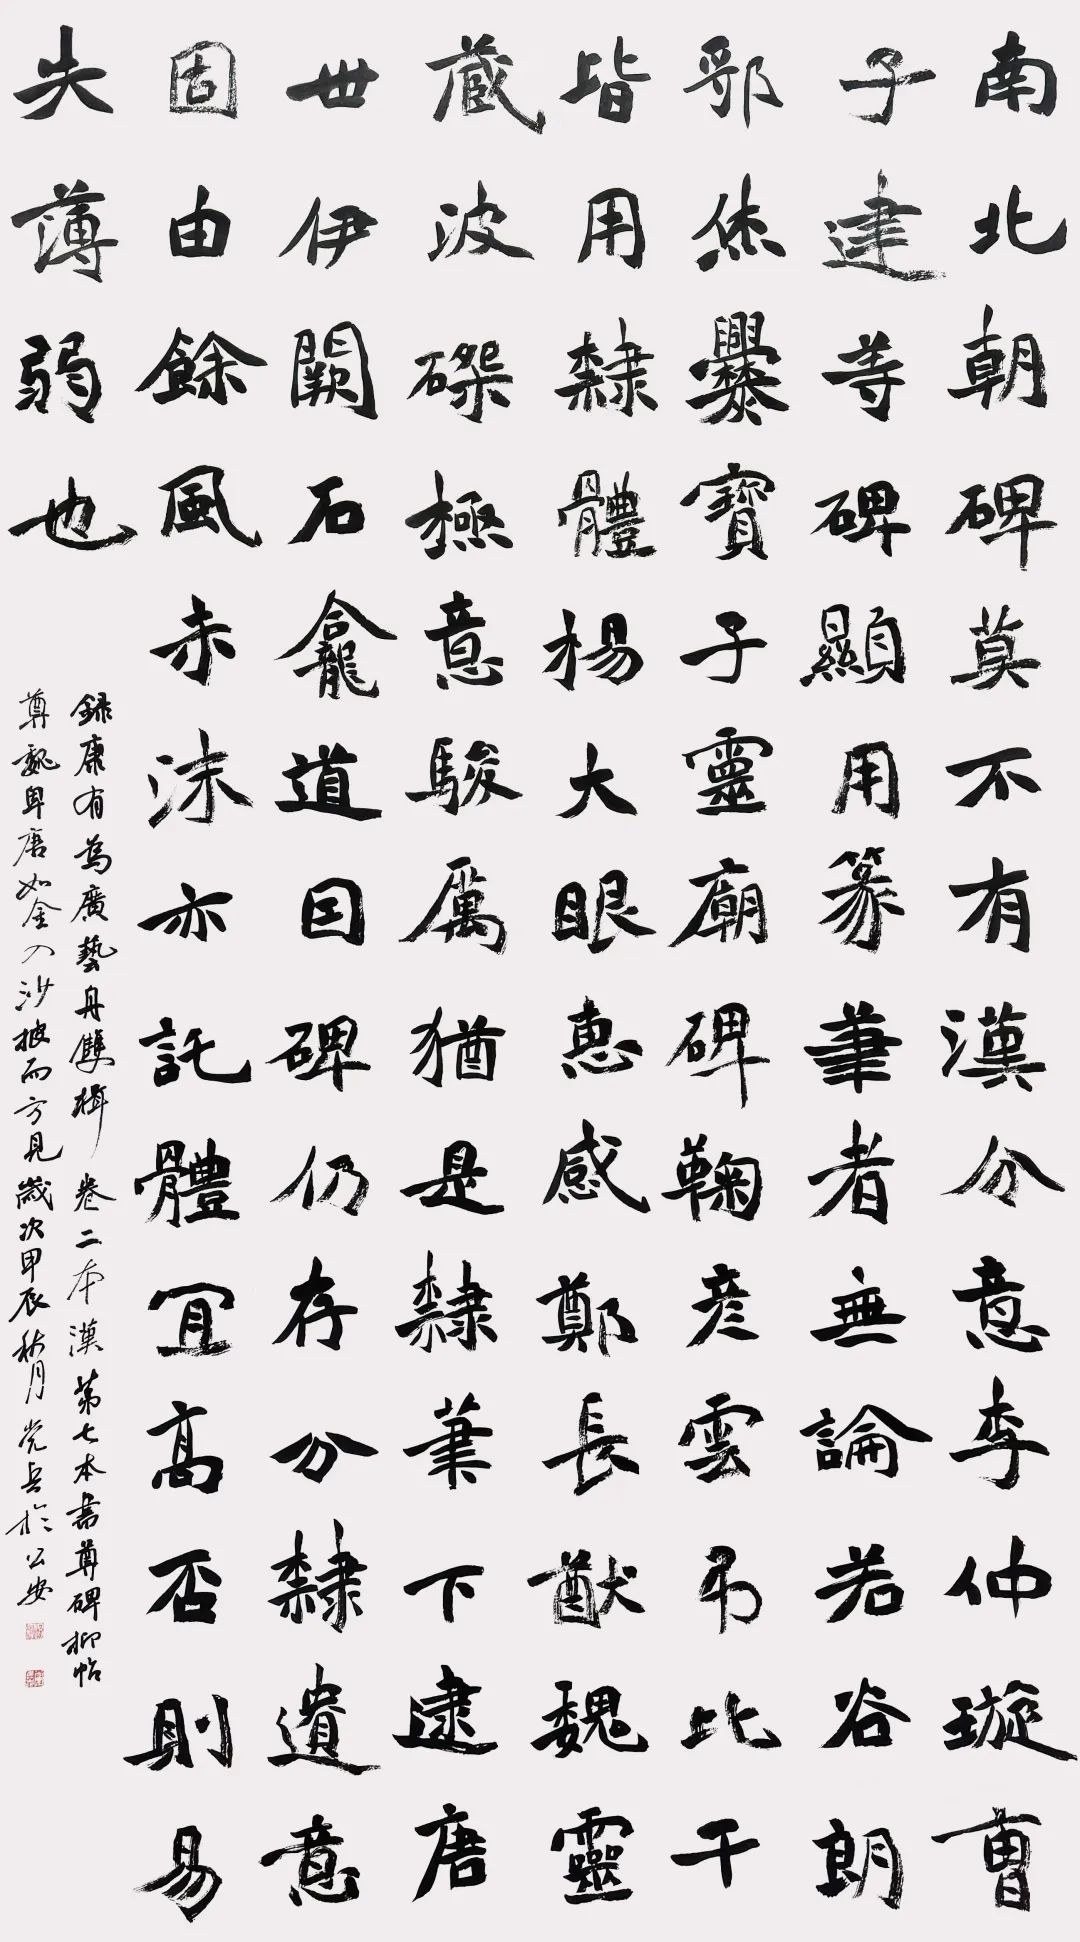 南北朝碑莫不有漢分意李仲璇曹
子建等碑顯用篆筆者無論若谷朗
郛休爨寶子靈廟碑鞠彦雲弔比干
皆用隸體楊大眼惠感鄭長猷魏靈
蔵波磔極意駿厲猶是隸筆下逮唐
世伊闕石龕道因碑仍存分隸遺意
固由餘風未沫亦託體宜高否則易
失薄弱也
録康有為廣藝舟雙楫卷二本漢第七本書尊碑抑帖
尊魏卑唐如金入沙披而方見歲次甲辰秋月党兵於公安